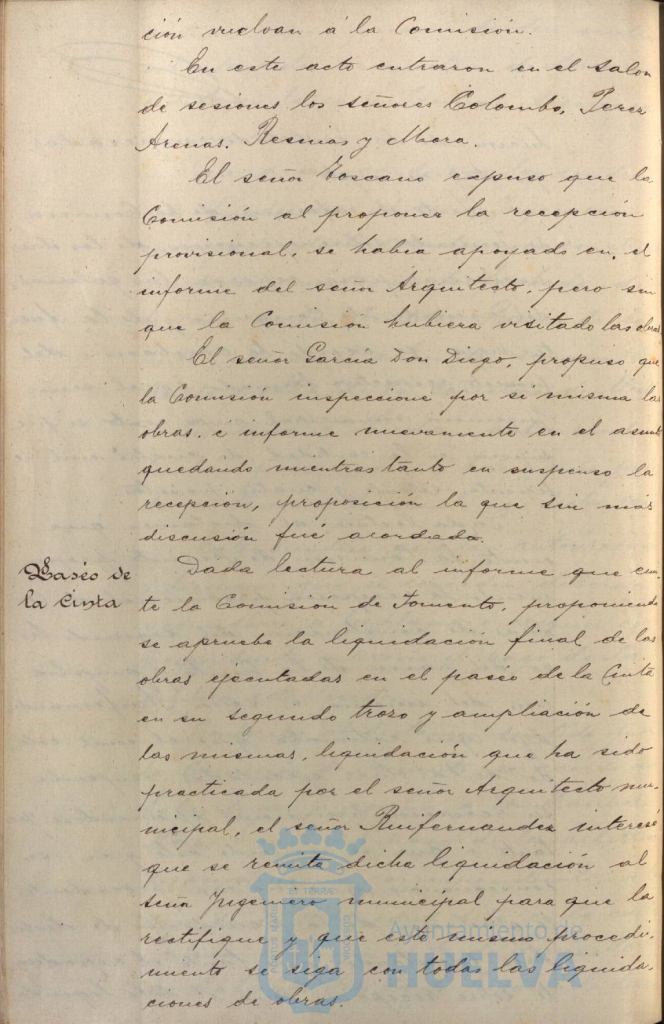 ción vuelvan á la Comisión.
En este acto entraron en el salon
de sesiones los señores Colombo, Perez
Arenas, y Mora.
El señor Toscano expuso que la
Comisión al proponer la recepción
provisional, se habia apoyado en, el
informe del señor Arquitecto, pero sin
que la Comisión hubiera visitado las obras.
El señor García Don Diego, propuso que
la Comisión inspeccione por si misma las
obras. é informe nuevamente en el asunto
quedando mientras tanto en suspenso la
recepción, proposición la que sin más
discusión fué acordada.
Paseo de
la Cinta
Dada lectura al informe que emi-
te la Comisión de Fomento, proponiendo
se apruebe la liquidación final de las
obras ejecutadas en el paseo de la Cinta
en su segundo trozo y ampliación de
las mismas, liquidación que ha sido
practicada por el señor Arquitecto mu-
nicipal, el señor Ruifernandez interesó
que se remita dicha liquidación al
señor Ingeniero municipal para que la
rectifique y que este mismo procedi-
miento se siga con todas las liquida-
ciones de obras.
Ayuntamiento de
HUELVA